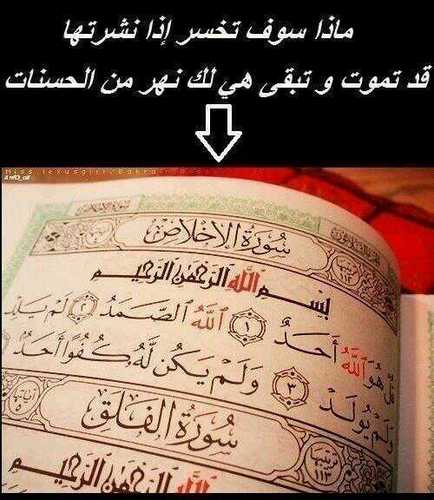 ماذا سوف تخسر إذا نشرتها
قد تموت و تبقى هي لك نهر من الحسنات
سُورَةُ الإِخْلَاصِ
بِسْمِ اللَّهِ الرَّحْمَٰنِ الرَّحِيمِ
قُلْ هُوَ اللَّهُ أَحَدٌ ١ اللَّهُ الصَّمَدُ ٢ لَمْ يَلِدْ
وَلَمْ يُولَدْ ٣ وَلَمْ يَكُن لَّهُ كُفُوًا أَحَدٌ
سُورَةُ الْفَلَقِ
ترتيبها ١١٣
اللَّهِ الرَّحْمَٰنِ الرَّحِيمِ